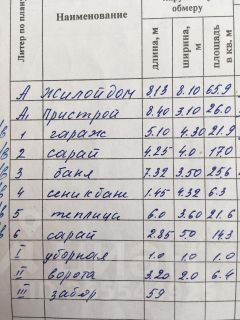 Литер по плану Наименование обмеру
длина, м ширина, м площадь в кв. м
А Жилой дом 8.13 8.10 65.9
А1 Пристрой 8.40 3.10 26.0
1 гараж 5.10 4.30 21.9
2 сарай 4.25 4.0 17.0
3 баня 7.32 3.50 25.6
4 сеник бане 1.45 4.32 6.3
5 теплица 6.0 3.60 21.6
6 сарай 2.85 5.0 14.3
I уборная 1.0 1.0 1.0
II ворота 3.20 2.0 6.4
III забор 59